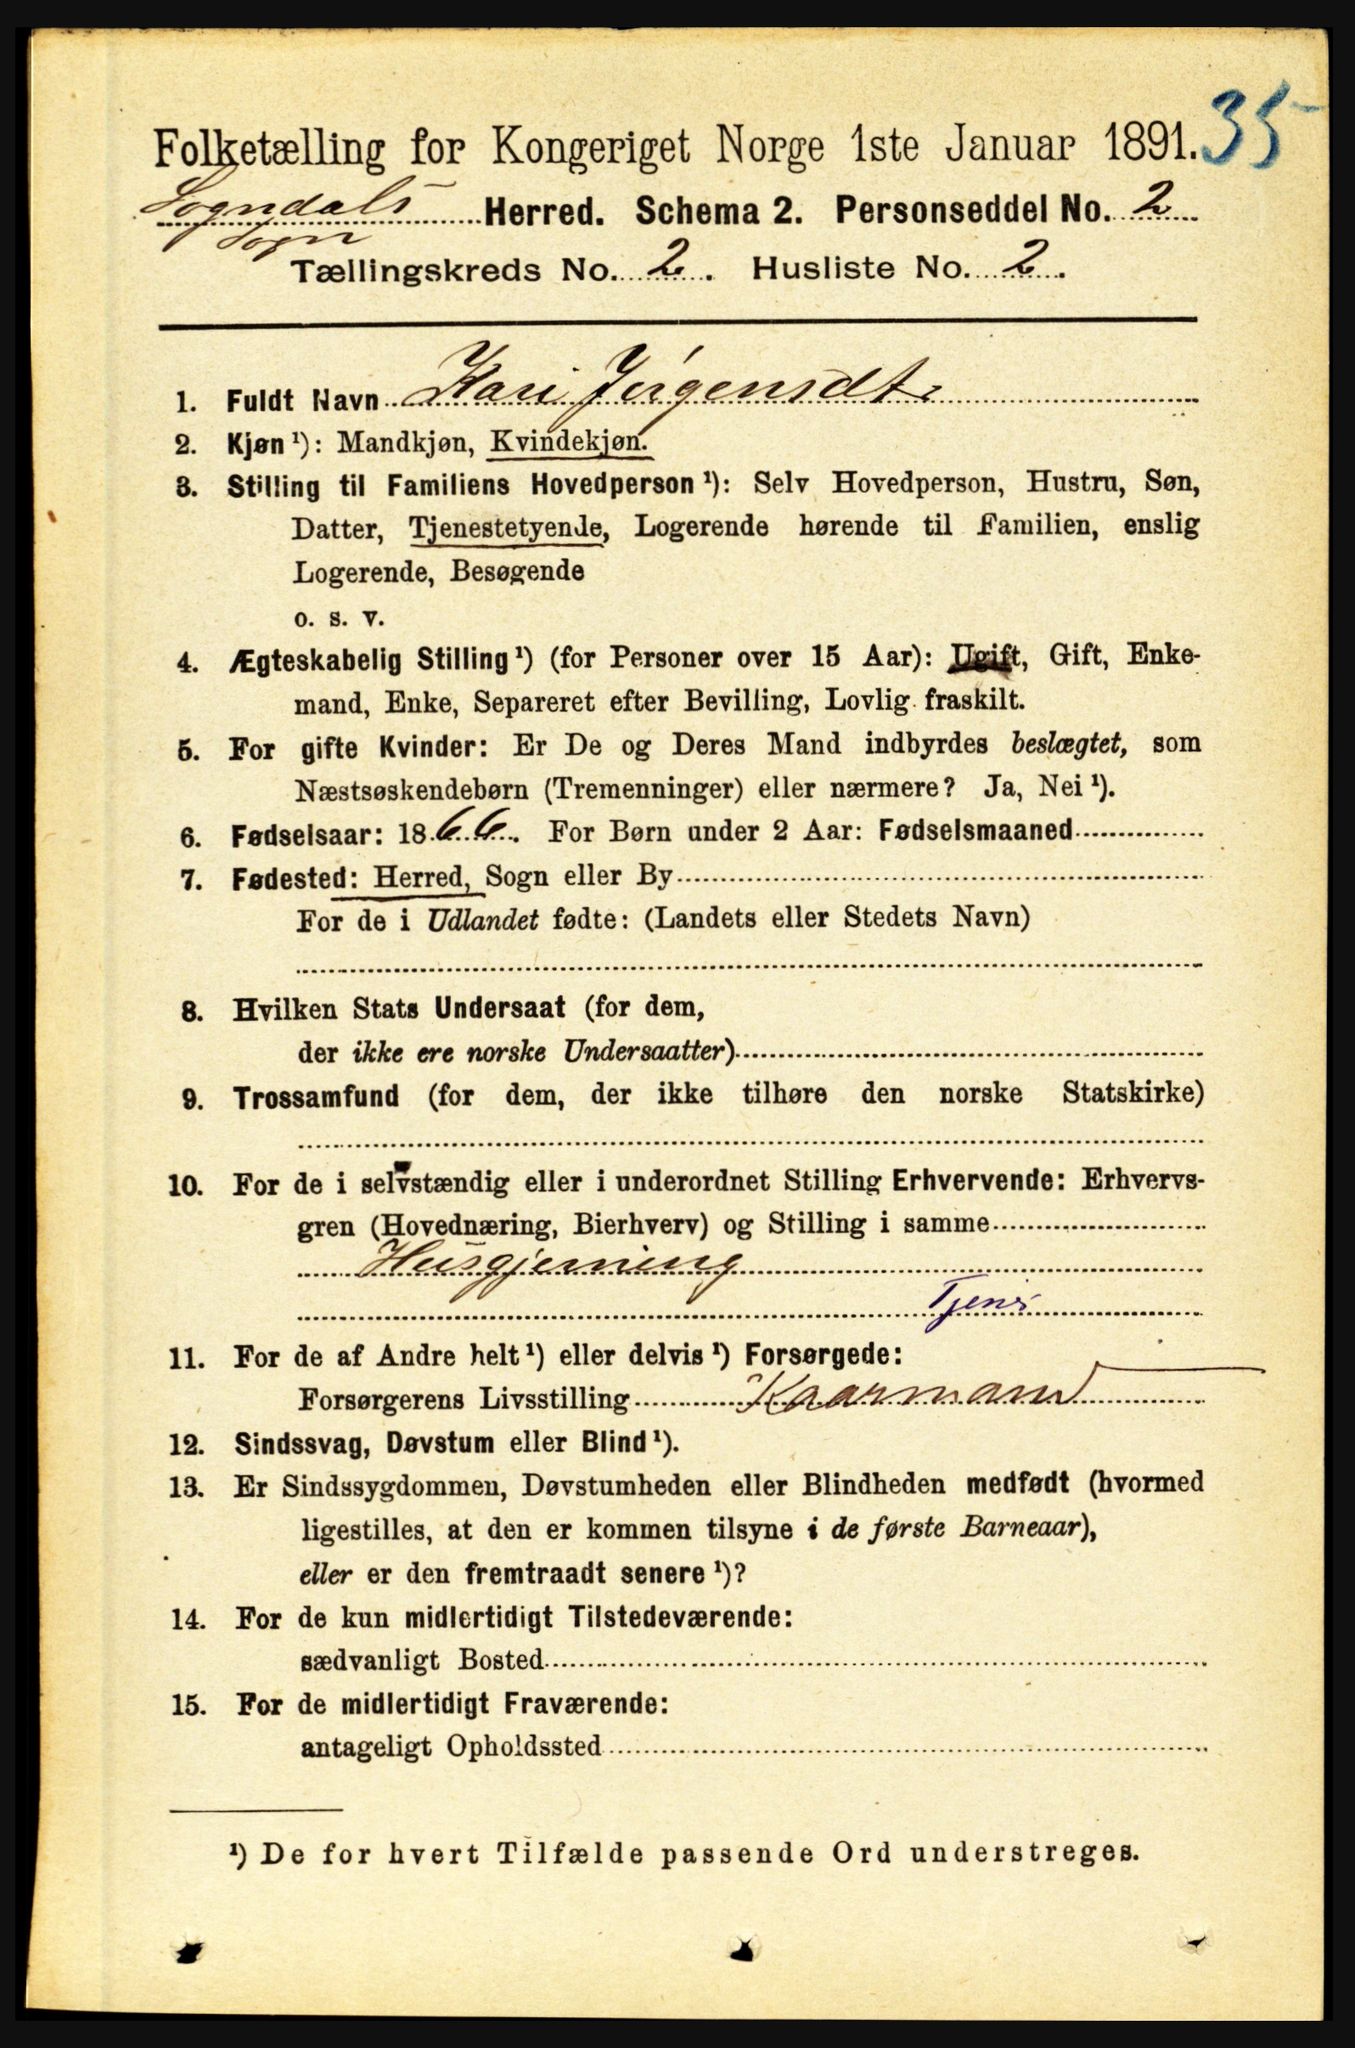 Folketælling for Kongeriget Norge 1ste Januar 1891. 35
Sogndals Herred. Schema 2. Personseddel No. 2
Sogn
Tællingskreds No. 2. Husliste No. 2.
1. Fuldt Navn Kari Jørgensdt.
2. Kjøn ¹): Mandkjøn, Kvindekjøn.
3. Stilling til Familiens Hovedperson ¹): Selv Hovedperson, Hustru, Søn,
Datter, Tjenestetyende, Logerende hørende til Familien, enslig
Logerende, Besøgende
o. s. v.
4. Ægteskabelig Stilling ¹) (for Personer over 15 Aar): Ugift, Gift, Enke-
mand, Enke, Separeret efter Bevilling, Lovlig fraskilt.
5. For gifte Kvinder: Er De og Deres Mand indbyrdes beslægtet, som
Næstsøskendebørn (Tremenninger) eller nærmere? Ja, Nei ¹).
6. Fødselsaar: 1866. For Børn under 2 Aar: Fødselsmaaned
7. Fødested: Herred, Sogn eller By
For de i Udlandet fødte: (Landets eller Stedets Navn)
8. Hvilken Stats Undersaat (for dem,
der ikke ere norske Undersaatter)
9. Trossamfund (for dem, der ikke tilhøre den norske Statskirke)
10. For de i selvstændig eller i underordnet Stilling Erhvervende: Erhvervs-
gren (Hovednæring, Bierhverv) og Stilling i samme
Husgjerning
Tjener
11. For de af Andre helt ¹) eller delvis ¹) Forsørgede:
Forsørgerens Livsstilling Kaarmand
12. Sindssvag, Døvstum eller Blind ¹).
13. Er Sindssygdommen, Døvstumheden eller Blindheden medfødt (hvormed
ligestilles, at den er kommen tilsyne i de første Barneaar),
eller er den fremtraadt senere ¹)?
14. For de kun midlertidigt Tilstedeværende:
sædvanligt Bosted
15. For de midlertidigt Fraværende:
antageligt Opholdssted
¹) De for hvert Tilfælde passende Ord understreges.